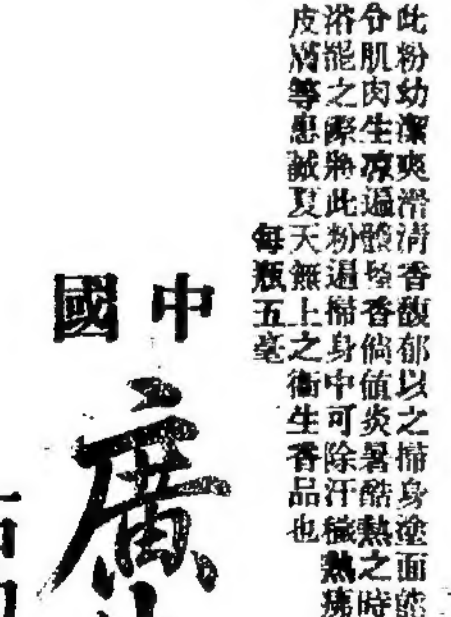 此粉幼潔爽滑清香馥郁以之掃身塗面能
令肌肉生凉遍體堅香倘值炎暑酷熱之時
浴罷之際將此粉遍掃身中可除汗穢熱痱
皮膚等患誠夏天無上之衛生香品也
每瓶五毫
中國
廣